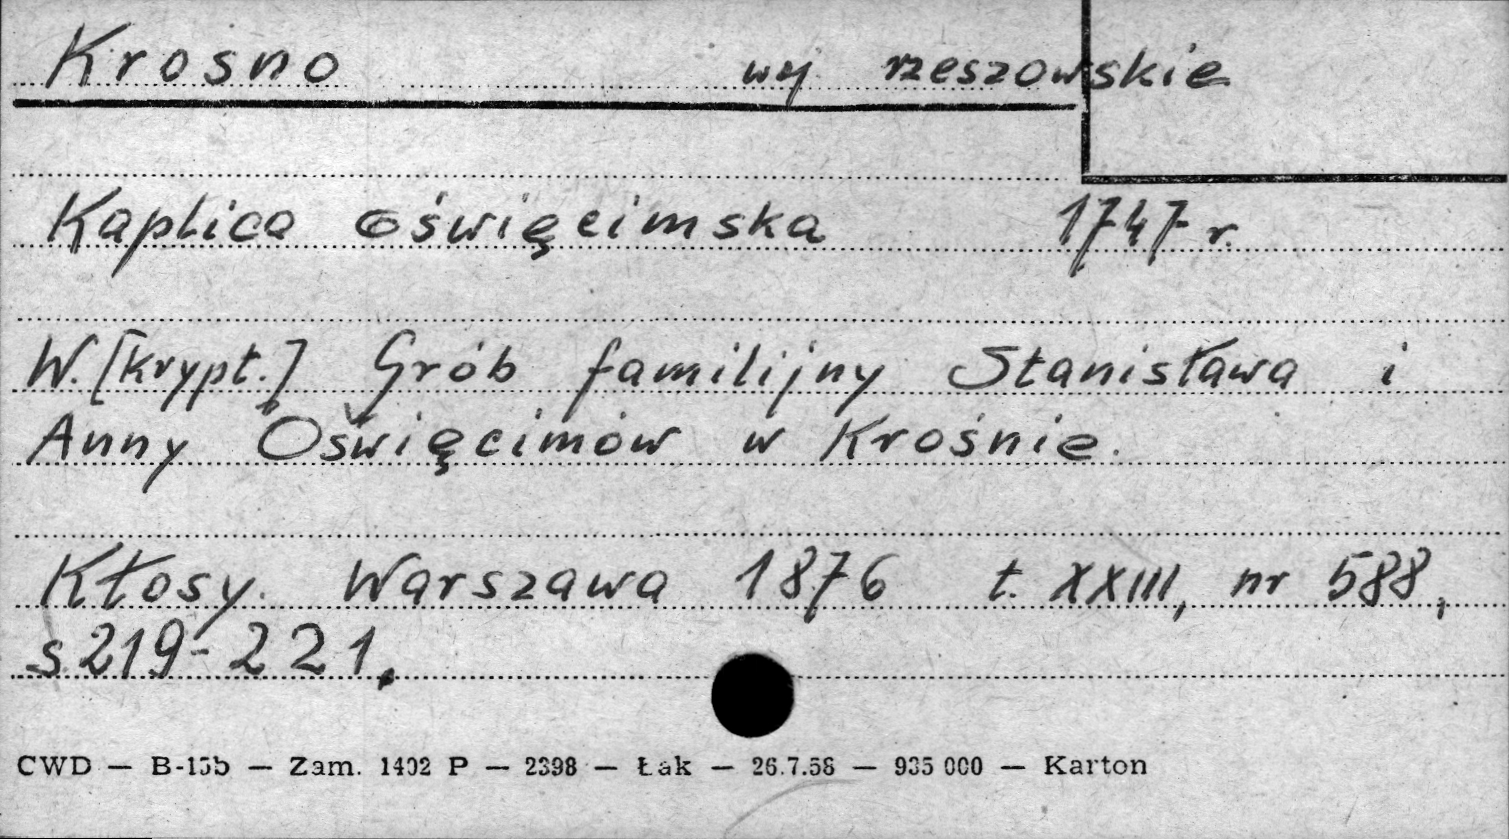 Krosno wj rzeszowskie
Kaplica oświęcimska 1747 r.
W. [krypt.] Grób familijny Stanisława i
Anny Oświęcimów w Krośnie.
Kłosy. Warszawa 1876 t. XXIII, nr 588,
s 219-221.
CWD — B-15b — Zam. 1402 P — 2398 — Łak — 26.7.58 — 935 000 — Karton